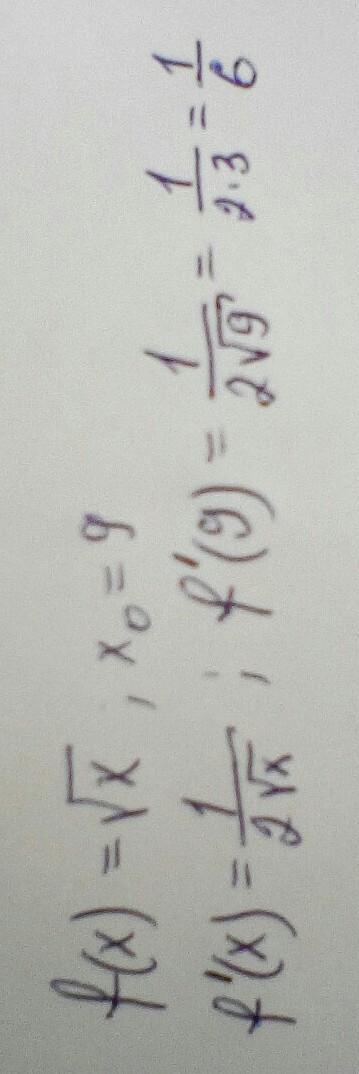 f(x) = √x ; x₀ = 9
f'(x) = 1/(2√x) ; f'(9) = 1/(2√9) = 1/(2·3) = 1/6